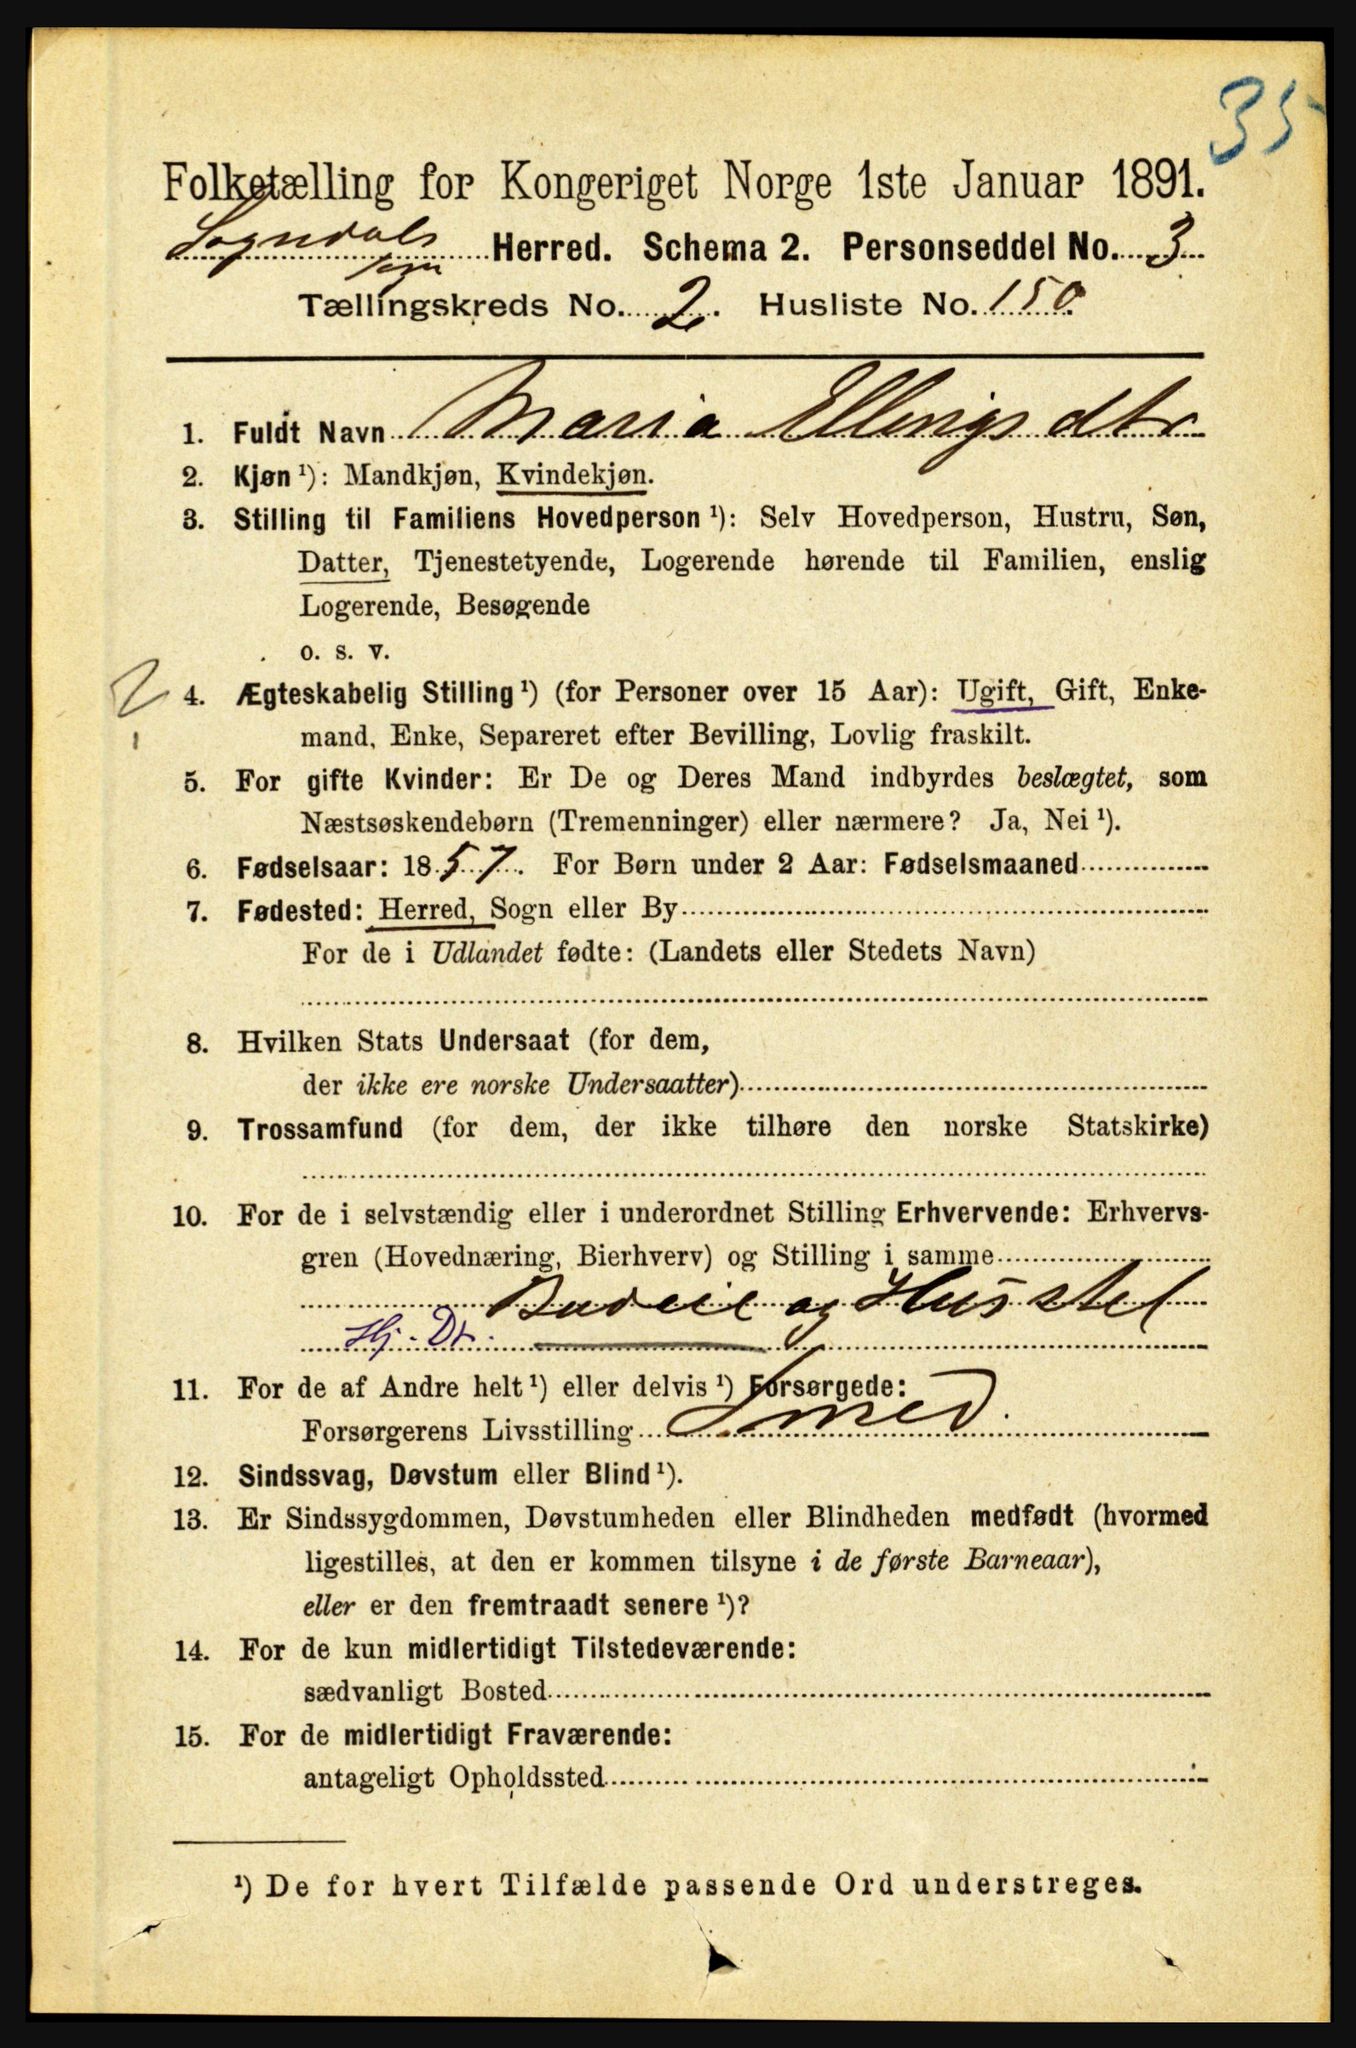 35
Folketælling for Kongeriget Norge 1ste Januar 1891.
Sogndals Herred. Schema 2. Personseddel No. 3
Tællingskreds No. 2. Husliste No. 150
1. Fuldt Navn Maria Ellingsdtr
2. Kjøn ¹): Mandkjøn, Kvindekjøn.
3. Stilling til Familiens Hovedperson ¹): Selv Hovedperson, Hustru, Søn,
Datter, Tjenestetyende, Logerende hørende til Familien, enslig
Logerende, Besøgende
o. s. v.
4. Ægteskabelig Stilling ¹) (for Personer over 15 Aar): Ugift, Gift, Enke-
mand, Enke, Separeret efter Bevilling, Lovlig fraskilt.
5. For gifte Kvinder: Er De og Deres Mand indbyrdes beslægtet, som
Næstsøskendebørn (Tremenninger) eller nærmere? Ja, Nei ¹).
6. Fødselsaar: 1857. For Børn under 2 Aar: Fødselsmaaned
7. Fødested: Herred, Sogn eller By
For de i Udlandet fødte: (Landets eller Stedets Navn)
8. Hvilken Stats Undersaat (for dem,
der ikke ere norske Undersaatter)
9. Trossamfund (for dem, der ikke tilhøre den norske Statskirke)
10. For de i selvstændig eller i underordnet Stilling Erhvervende: Erhvervs-
gren (Hovednæring, Bierhverv) og Stilling i samme
Budeie og Husstel
Hj. Dt.
11. For de af Andre helt ¹) eller delvis ¹) Forsørgede:
Forsørgerens Livsstilling Smed.
12. Sindssvag, Døvstum eller Blind ¹).
13. Er Sindssygdommen, Døvstumheden eller Blindheden medfødt (hvormed
ligestilles, at den er kommen tilsyne i de første Barneaar),
eller er den fremtraadt senere ¹)?
14. For de kun midlertidigt Tilstedeværende:
sædvanligt Bosted
15. For de midlertidigt Fraværende:
antageligt Opholdssted
¹) De for hvert Tilfælde passende Ord understreges.